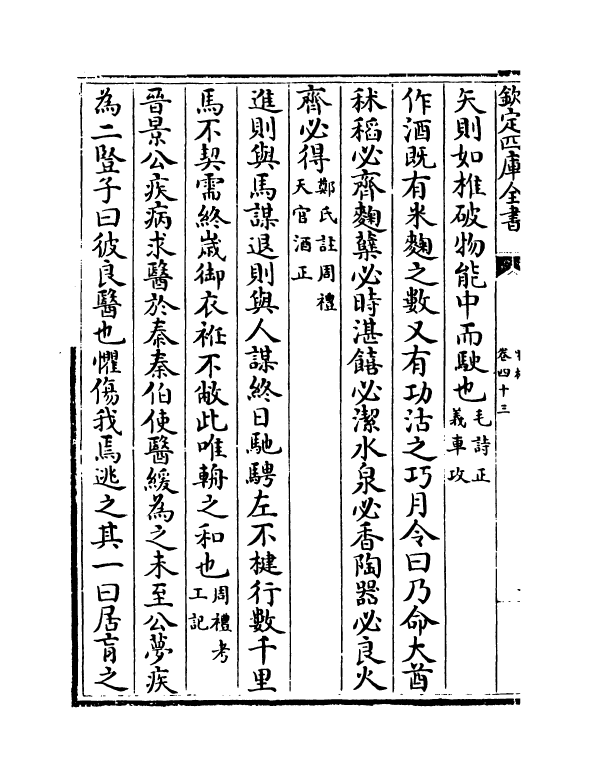 欽定四庫全書
卷四十三
矢則如椎破物能中而駛也毛詩正義車攻
作酒既有米麴之數又有功沽之巧月令曰乃命大酋
秫稻必齊麴糱必時湛饎必潔水泉必香陶器必良火
齊必得鄭氏註周禮天官酒正
進則與馬謀退則與人謀終日馳騁左不楗行數千里
馬不契需終嵗御衣袵不敝此唯輈之和也周禮考工記
晉景公疾病求醫於秦秦伯使醫緩為之未至公夢疾
為二豎子曰彼良醫也懼傷我焉逃之其一曰居肓之